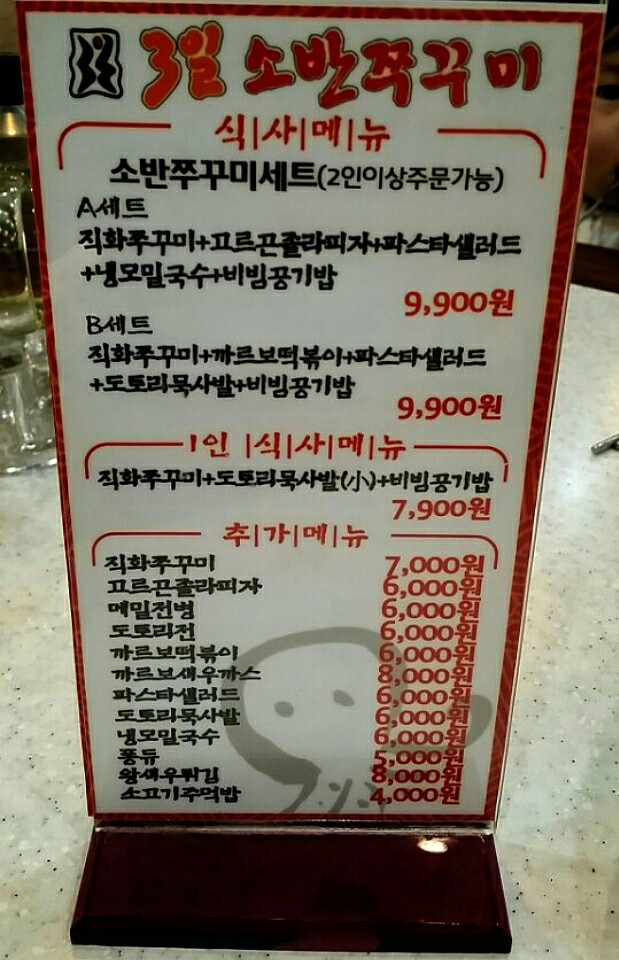 3일 소반쭈꾸미
식|사|메|뉴
소반쭈꾸미세트(2인이상주문가능)
A세트
직화쭈꾸미+고르곤졸라피자+파스타샐러드
+냉모밀국수+비빔공기밥
9,900원
B세트
직화쭈꾸미+까르보떡볶이+파스타샐러드
+도토리묵사발+비빔공기밥
9,900원
1인 |식|사|메|뉴
직화쭈꾸미+도토리묵사발(小)+비빔공기밥
7,900원
추|가|메|뉴
직화쭈꾸미 7,000원
고르곤졸라피자 6,000원
메밀전병 6,000원
도토리전 6,000원
까르보떡볶이 6,000원
까르보새우까스 8,000원
파스타샐러드 6,000원
도토리묵사발 6,000원
냉모밀국수 6,000원
퐁듀 5,000원
왕새우튀김 8,000원
소고기주먹밥 4,000원